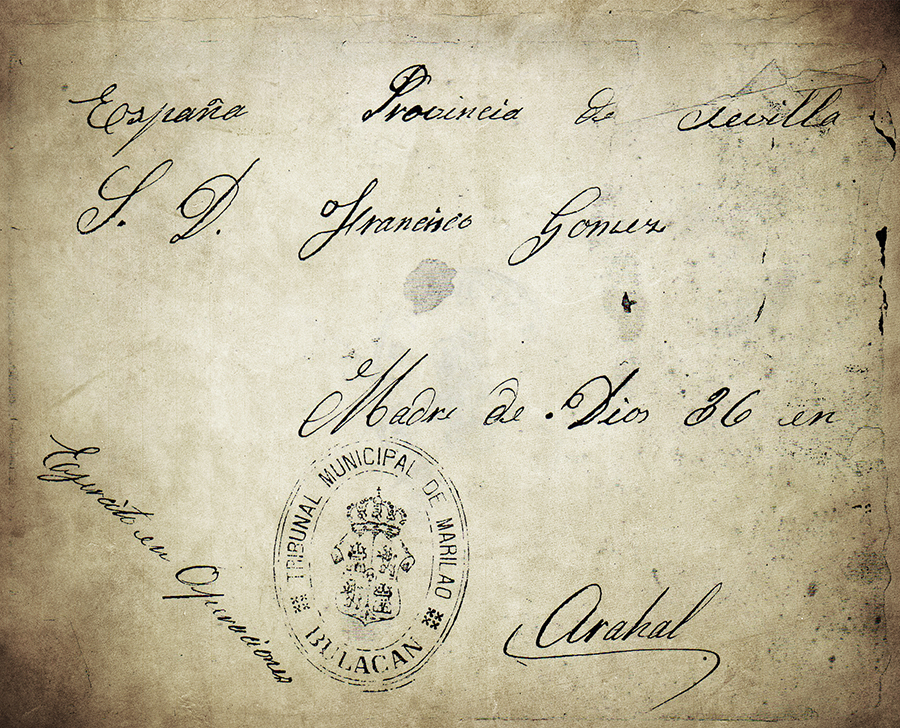 España Provincia de Sevilla
S. D. Francisco Gomez
Madre de Dios 36 en
Arahal
Egercito en Operaciones
TRIBUNAL MUNICIPAL DE MARILAO
BULACAN